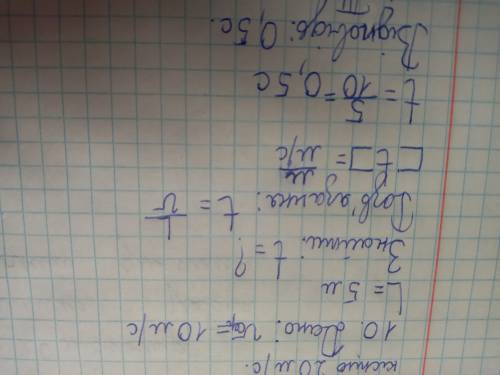 кістю 20 м/с.
10. Дано: v = 10 м/с
L = 5 м
Знайти: t = ?
Розв'язання: t = L/v
[t] = м/м/с
t = 5/10 = 0,5 с
Відповідь: 0,5 с.